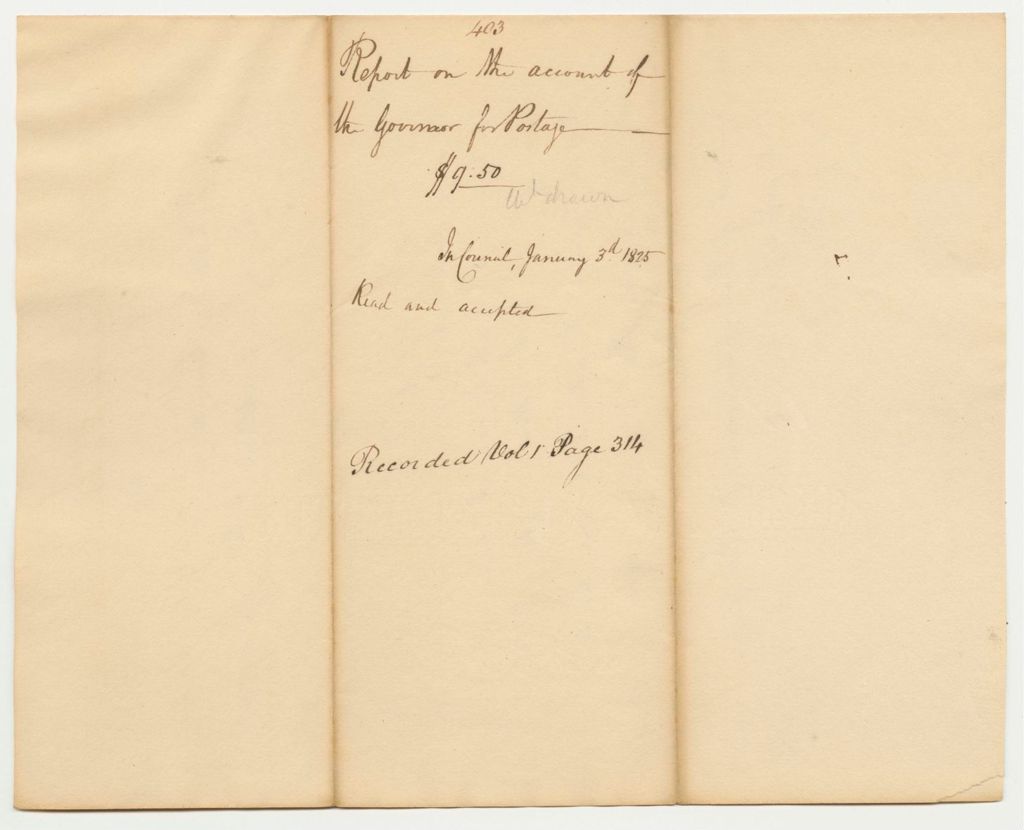 403
Report on the account of
the Governor for Postage
$9.50
Wtdrawn
In Council, January 3d. 1825
Read and accepted
Recorded Vol 1 Page 314